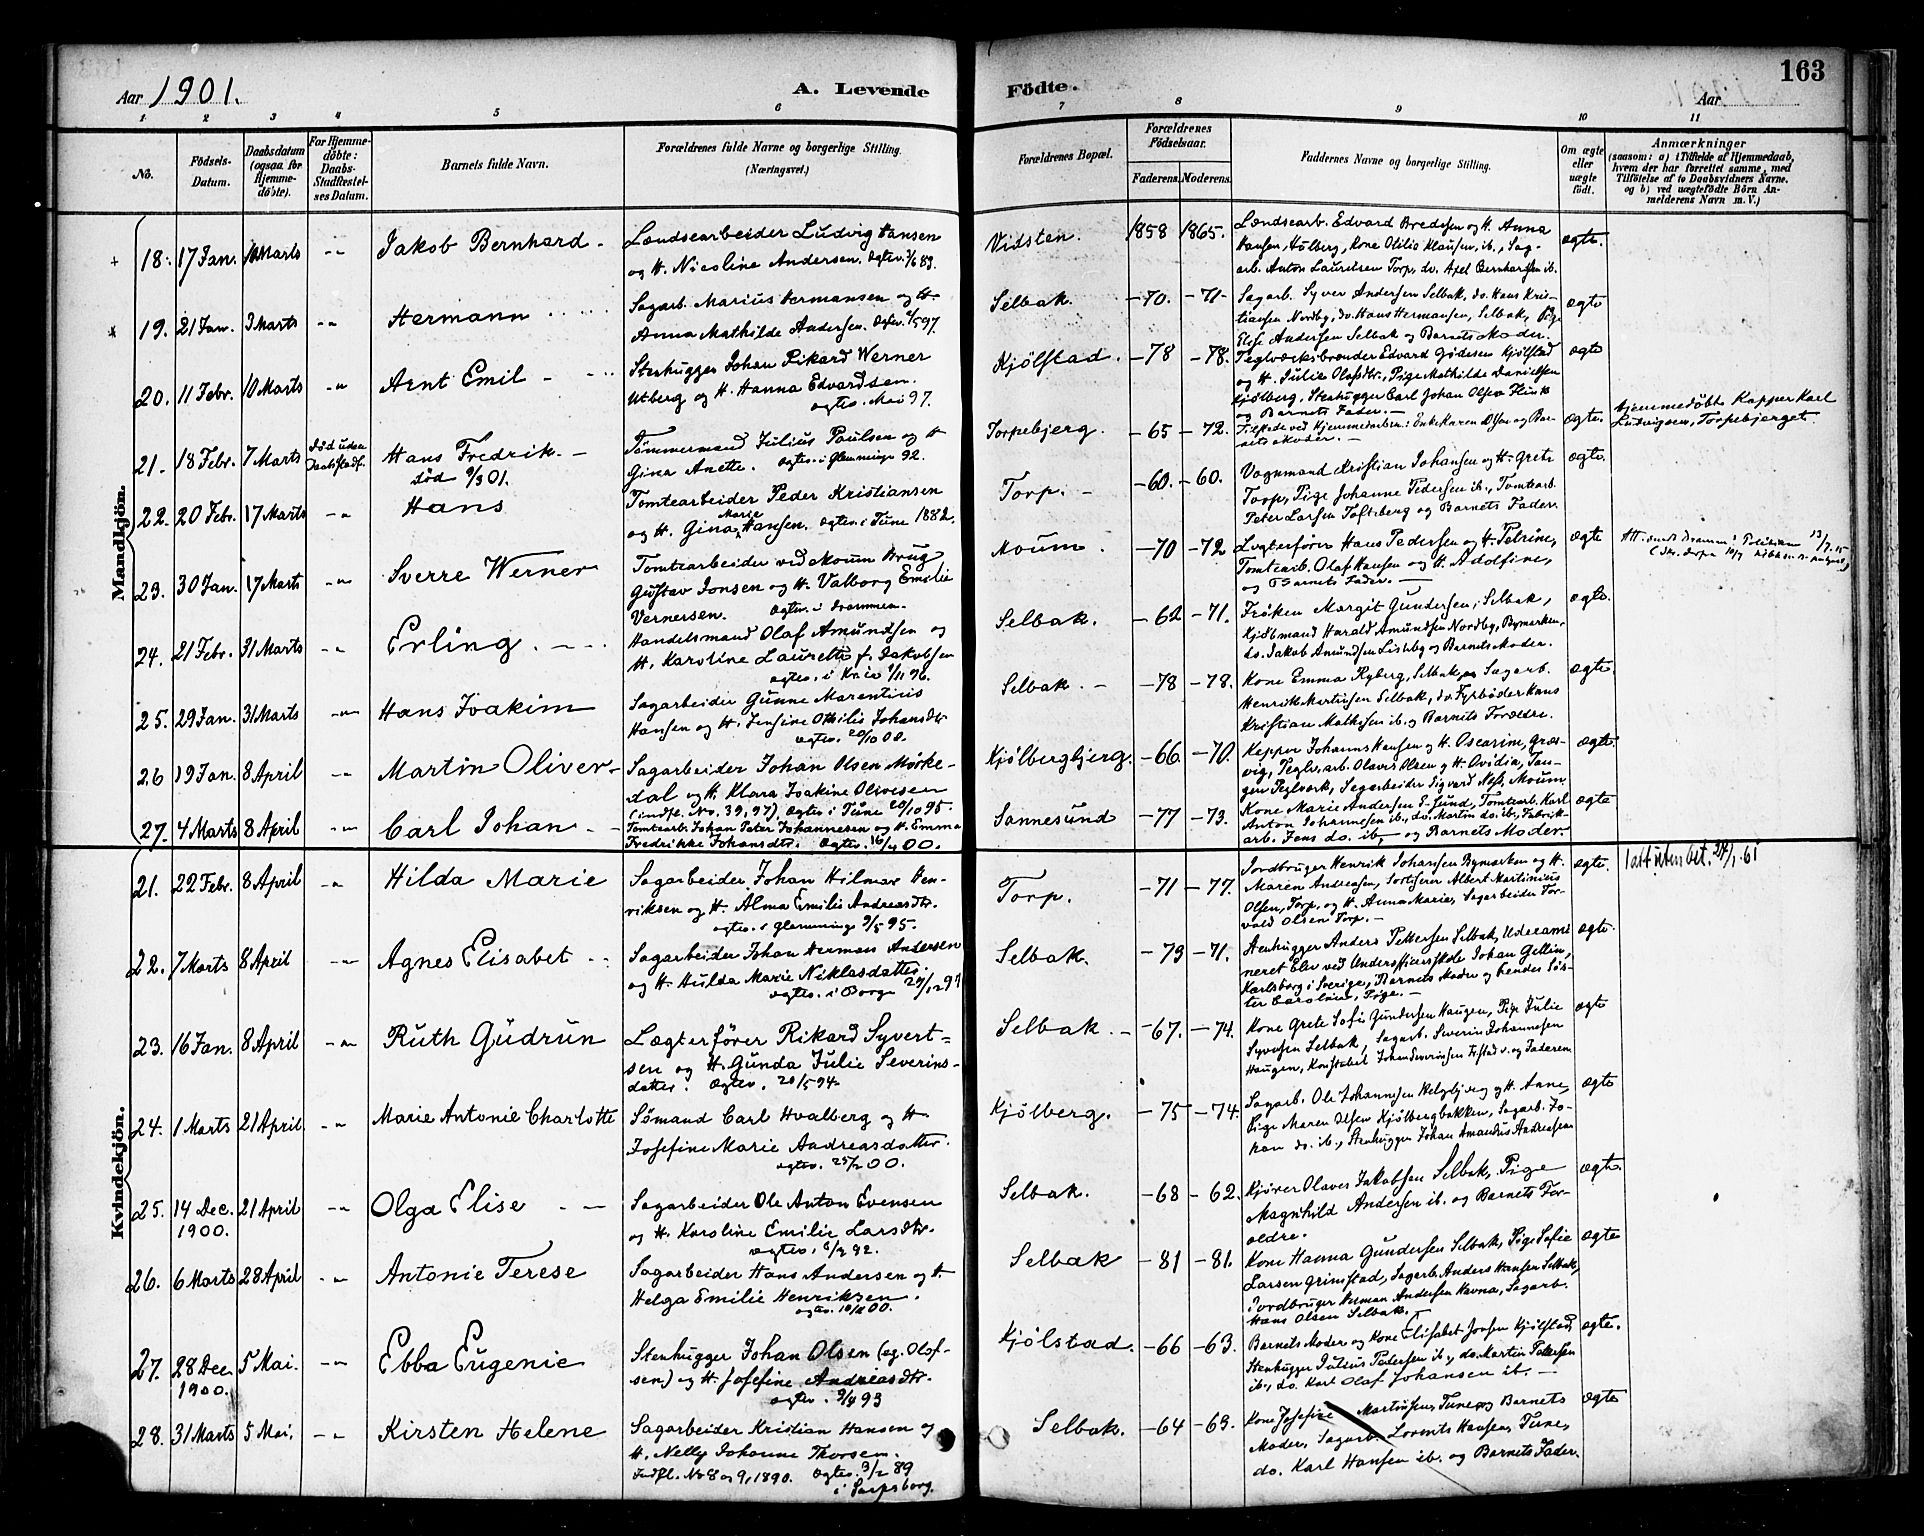 163
Aar 1901.
A. Levende
Födte.
Aar
1 2 3 4 5 6 7 8 9 10 11
No.
Födsels-Datum.
Daabsdatum (ogsaa for Hjemme-döbte).
For Hjemme-döbte: Daabs-Stadfæstel-ses Datum.
Barnets fulde Navn.
Forældrenes fulde Navne og borgerlige Stilling.
(Næringsvei.)
Forældrenes Bopæl.
Forældrenes Födselsaar.
Faderens.
Moderens.
Faddernes Navne og borgerlige Stilling.
Om ægte eller uægte født.
Anmærkninger
(saasom: a) i Tilfælde af Hjemmedaab, hvem der har forrettet samme, med Tilföielse af to Daabsvidners Navne. og b) ved uægtefödte Börn An-melderens Navn m. V.)
Mandkjön.
18. 17 Jan. 10 Marts -"- Jakob Bernhard -
Lændsearbeider Ludvig Hansen
og H. Nicoline Andersen.
Vidsten. 1858 1865.
Lændsearb. Edvard Bredesen og H. Anna
ægte.
19. 21 Jan. 3 Marts -"- Hermann
Sagarb. Marius Hermansen og H.
Anna Mathilde Andersen.
Selbak. -70. -71-
Sagarb. Syver Andersen Selbak, do. Hans Kris-
tiansen Nordby, do. Hans Hermansen, Selbak, Pige
Else Andersen Selbak og Barnets Moder.
ægte
20. 11 Febr. 10 Marts -"- Arnt Emil -
Stenhugger Johan Rikard Werner
Utberg og H. Hanna Edvardsen.
ægtev. Mai 97.
Kjölstad. -78 -78.
Teglværksbrænder Edvard Gjdesen Kjölstad
og H. Julie Olafsdtr., Pige Mathilde Danielsen
Kjölberg, Stenhugger Carl Johan Olsen
og Barnets Fader.-
ægte
21. 18 Febr. 7 Marts Död uden Daabsstadf. Hans Fredrik. -
död 9/3 01.
Tömmermand Julius Paulsen og H
Gina Anette. ægtev. i Glemminge 92.
Torpebjerg. -65 -72.
ægte.
Hjemmedöbt Kapper Karl
Ludvigsen, Torpebjerget.
22. 20 Febr. 17 Marts -"- Hans
Tomtearbeider Peder Kristiansen
og H. Gina Marie Hansen. ægtev. i Tune 1882.
Torp. - -60. -60.
Vognmand Kristian Johansen og H. Grete
Torp, Pige Johanne Pedersen ib., Tomtearb.
Peter Larsen Tofteberg og Barnets Fader.
ægte.
23. 30 Jan. 17 Marts -"- Sverre Werner
Tomtearbeider ved Moum Brug
Gustav Jonsen og H. Valborg Emilie
Vernersen. ægtev. i Drammen.
Moum. -70 -72
Lægterförer Hans Pedersen og H. Petrine,
Tomtearb. Olaf Hansen og H. Adolfine,
og Barnets Fader. -
ægte
24. 21 Febr. 31 Marts -"- Erling.
Handelsmand Olaf Amundsen og
H. Karoline Laurette f. Jakobsen
Selbak. -62 -71.
Fröken Margit Gundersen, Selbak,
Kjöbmand Harald Amundsen Nordby, Bymarken,
do. Jakob Amundsen Lisleby og Barnets Moder.
ægte.
25. 29 Jan. 31 Marts -"- Hans Joakim
Sagarbeider Gunne Marentius
Hansen og H. Jensine Othilie Johansdtr
ægtev. 20/10 00.
Selbak. - -78 -78.
Kone Emma Ryberg, Selbak, og Sagarb.
Henrik Martinsen Selbak, do. Fyrböder Hans
Kristian Mathisen ib. og Barnets Forældre.
ægte.
26 19 Jan. 8 April -"- Martin Oliver -
Sagarbeider Johan Olsen Mörke-
dal og H. Klara Joakine Olivesen
(indfl. No. 39, 97), ægtev. i Tune 20/10 95.
Kjölbergbjerg. -66 -70.
Kapper Johannes Hansen og H. Oscarine, Græs-
vig, Teglv.arb. Olaves Olsen og H. Ovidia, Tan-
gen Teglværk, Sagarbeider Sigvard Næs, Moum
ægte.
27. 4 Marts 8 April -"- Carl Johan -
Tomtearb. Johan Peter Johannesen og H. Emma
Fredrikke Johansdtr.
Sannesund -77 -73.
Kone Marie Andersen S-Sund, Tomtearb. Karl
Anton Johannesen ib., do. Martin do. ib., Fabrik-
arb. Jens do. ib. og Barnets Moder.
ægte
Kvindekjön.
21. 22 Febr. 8 April -"- Hilda Marie
Sagarbeider Johan Hilmar Hen-
riksen og H. Alma Emilie Andreasdtr.
ægtev. i Glemminge 9/5 95.
Torp. -71 -77.
Jordbruger Henrik Johansen Bymarken og H.
Maren Andreasen, Sorterer Albert Martinius
Olsen, Torp, og H. Anna Marie, Sagarbeider Tor-
vald Olsen Torp. -
ægte.
22. 7 Marts 8 April -"- Agnes Elisabet
Sagarbeider Johan Herman Andersen
og H. Hulda Marie Niklasdatter.
Selbak. -73 -71.
Stenhugger Anders Pettersen Selbak, Udexami-
neret Elev ved Underofficersskole Johan Gellin,
Karlsborg i Sverige, Barnets Moder og hendes Sös-
ter Caroline, Pige. -
ægte.
23. 16 Jan. 8 April -"- Ruth Gudrun
Lægterförer Rikard Syvert-
sen og H. Gunda Julie Severins-
datter. ægtev. 20/5 94.
Selbak. - -67. -74.
Kone Grete Sofie Gundersen Haugen, Pige Julie
Syversen Selbak, Sagarb. Severin Johannesen
ægte
24. 1 Marts 21 April -"- Marie Antonie Charlotte
Sömand Carl Hvalberg og H
Josefine Marie Andreasdatter.
Kjölberg. -75 -74.
Sagarb. Ole Johannesen Helgebjerg og H. Anne,
Pige Maren Olsen Kjölbergbakken, Sagarb. Jo-
han do. ib., Stenhugger Johan Amandus Andreassen
ægte
25. 14 Dec. 1900. 21 April -"- Olga Elise
Sagarbeider Ole Anton Evensen
og H. Karoline Emilie Larsdtr.
Selbak. -68 -62.
Kjörer Olaves Jakobsen Selbak, Pige
Magnhild Andersen ib. og Barnets For-
ældre.
ægte
26. 6 Marts 28 April -"- Antonie Terese
Sagarbeider Hans Andersen og H.
Helga Emilie Henriksen.
Selbak -81 -81.
Kone Hanna Gundersen Selbak, Pige Sofie
Larsen Grimstad, Sagarb. Anders Hansen Selbak,
Jordbruger Herman Andersen Havna, Sagarb.
Hans Olsen Selbak.
ægte
27. 28 Dec 1900. 5 Mai. -"- Ebba Eugenie
Stenhugger Johan Olsen (eg. Olof-
sen) og H. Josefine Andreasdtr.
ægtev. 9/4 93
Kjölstad. -66 -63.
Barnets Moder og Kone Elisabet Jonsen Kjölstad,
Stenhugger Julius Pedersen ib., do. Martin Petersen
ib., do. Karl Olaf Johansen ib. -
ægte.
28. 31 Marts 5 Mai. -"- Kirsten Helene
Sagarbeider Kristian Hansen og
H. Nelly Johanne Thorsen.
Indfl. No 8 og 9, 1890. ægtev. 3/2 89
i Sarpsborg.
Selbak. -64 -63.
Kone Josefine Martinsen, Tune, og Barnets
Moder, Sagarb. Lorents Hansen, Tune,
do. Karl Hansen ib. og Barnets Fader.
ægte